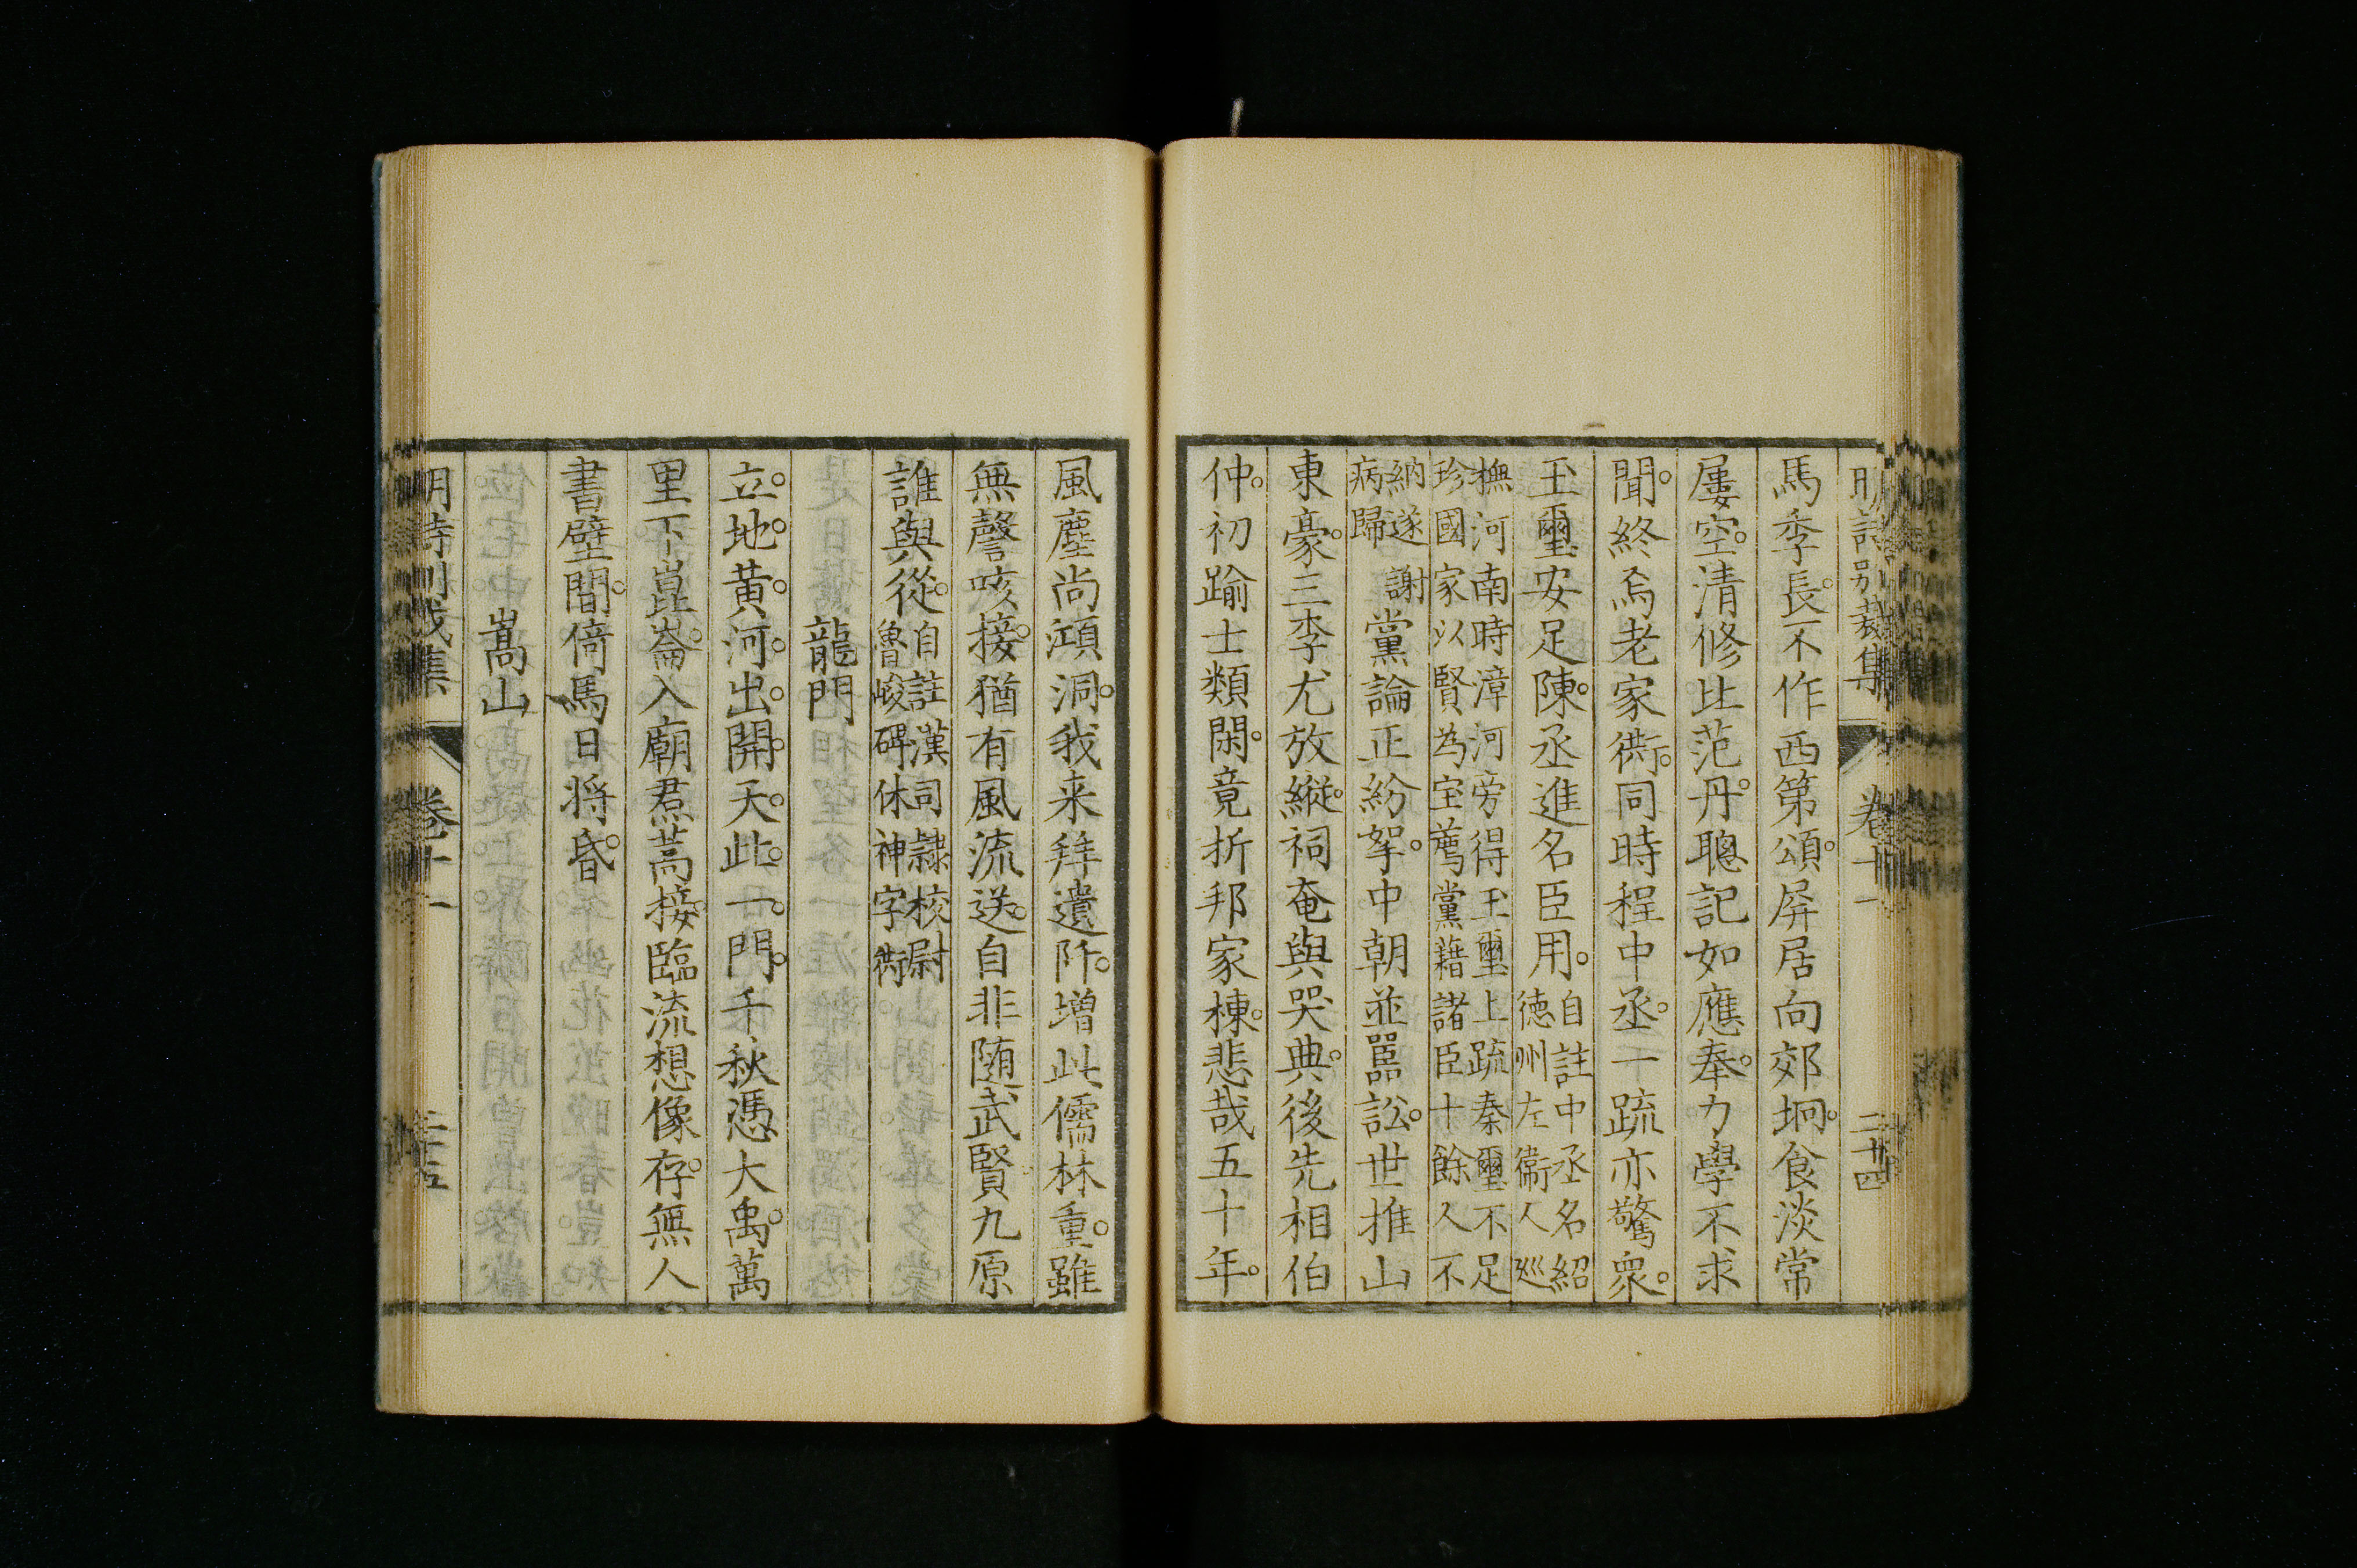 明詩別裁集 卷十一 二十四
馬季長不作西第頌。屏居向郊坰。食淡常
屢空。清修比范丹。聰記如應奉。力學不求
聞。終為老家衖。同時程中丞。一疏亦驚衆。
玉璽安足陳。丞進名臣用。自註中丞名紹
德州左衞人廵
撫河南時漳河旁得玉璽上疏秦璽不足
珍國家以賢為宝薦黨藉諸臣十餘人不
納遂謝
病歸
黨論正紛挐。中朝並嚚訟。世推山
東豪。三李尤放縱。祠奄與哭典。後先相伯
仲。初踰士類閑。竟折邦家棟。悲哉五十年。
風塵尚澒洞。我来拜遺阡。増此儒林重。雖
無謦咳接。猶有風流送。自非随武賢。九原
誰與從。自註漢司隷校尉
魯峻碑休神字衖
龍門
立。地。黄。河。出。開。天。此。一。門。千秋憑大禹。萬
里下崑崙。入廟焄蒿接。臨流想像存。無人
書壁間。倚馬日将昏。
嵩山
明詩別裁集 卷十一 二十五